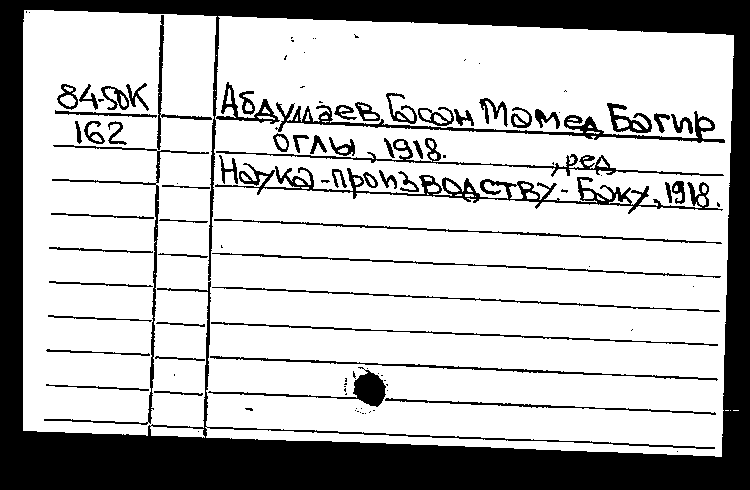 84-50К
162
Абдуллаев, Гасан Мамед Багир
оглы, 1918. , ред
Наука-производству.- Баку, 1918.